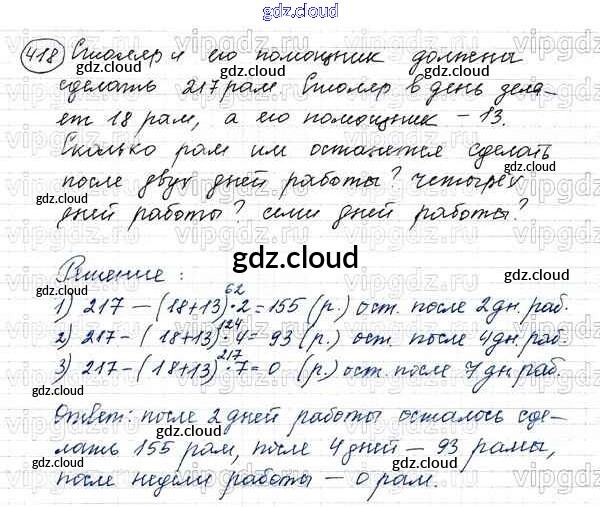 gdz.cloud
418 Столяр и его помощник должны
сделать 217 рам. Столяр в день дела-
ет 18 рам, а его помощник - 13.
Сколько рам им останется сделать
после двух дней работы? четырёх
дней работы? семи дней работы?
gdz.cloud
Решение :
62
1) 217 - (18+13)·2 = 155 (р.) ост. после 2 дн. раб.
124
2) 217 - (18+13)·4 = 93 (р.) ост. после 4 дн. раб.
217
3) 217 - (18+13)·7 = 0 (р.) ост. после 7 дн раб.
Ответ: после 2 дней работы осталось сде-
лать 155 рам, после 4 дней - 93 рамы,
после недели работы - 0 рам.